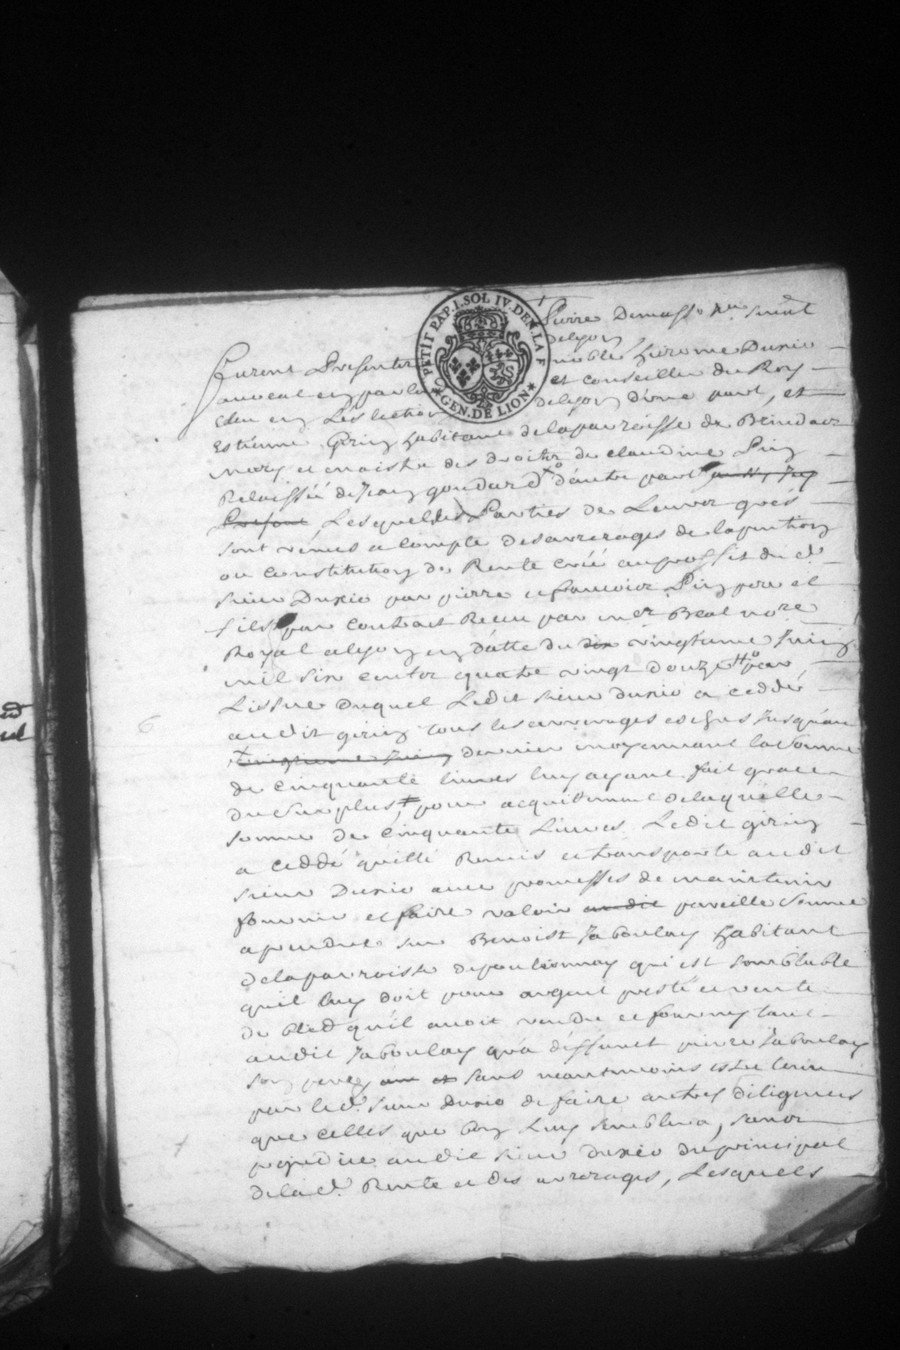 PETIT PAP. I. SOL IV. DEN. LA F
GEN. DE LION
Pierre Demasso
delyon
furent Presents noble hierome Dusxio
advocat en parle et conseiller du Roy
Eleu en Leslection delyon d'une part, et
Estienne Giriny habitant delaparroisse de Brindas
mary et maistre des droitz de claudine Piny
Relaissée dejean goudard d'autre part
Lesquelles Parties de Leur bon grés
sont venus a compte des arrerages de la pention
ou Constitution de Rente créé au proffit du d.
sieur Dusxio par pierre et francois Piny pere et
fils par contract Receu par Beal no.re
Royal alyon en datte du dix vingtieme Juin
mil six centz quatre vingt douze par
Lissue duquel Ledit sieur dusxio a ceddé
audit giriny tous les arrerages escheus Jusqu'au
vingtieme Juin dernier moyennant la somme
de cinquante livres luy ayant fait grace
du surplus, pour acquittement delaquelle
somme de cinquante Livres Ledit giriny
a ceddé quitté Remis et transporté audit
sieur Dusxio avec promesses de maintenir
fournir et faire valoir au dit pareille somme
aprendre sur Benoist Jaboulay habitant
delaparroisse depoulionnay qui est semblable
quil luy doit pour argent presté et vente
de bled qu'il avoit vendu et fourny tant
audit Jaboulay qu'a deffunct pierre Jaboulay
son pere sans neantmoins estre tenu
par led. sieur dusxio de faire autres diligences
que celles que bon Luy semblera, sans
prejudice audit sieur dusxio du principal
delad. Rente et des arrerages, Lesquels